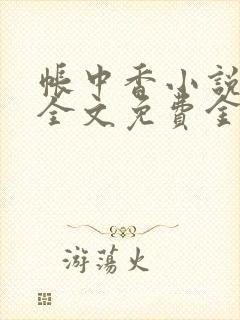 帳中香小說
全文免費全
游蕩火